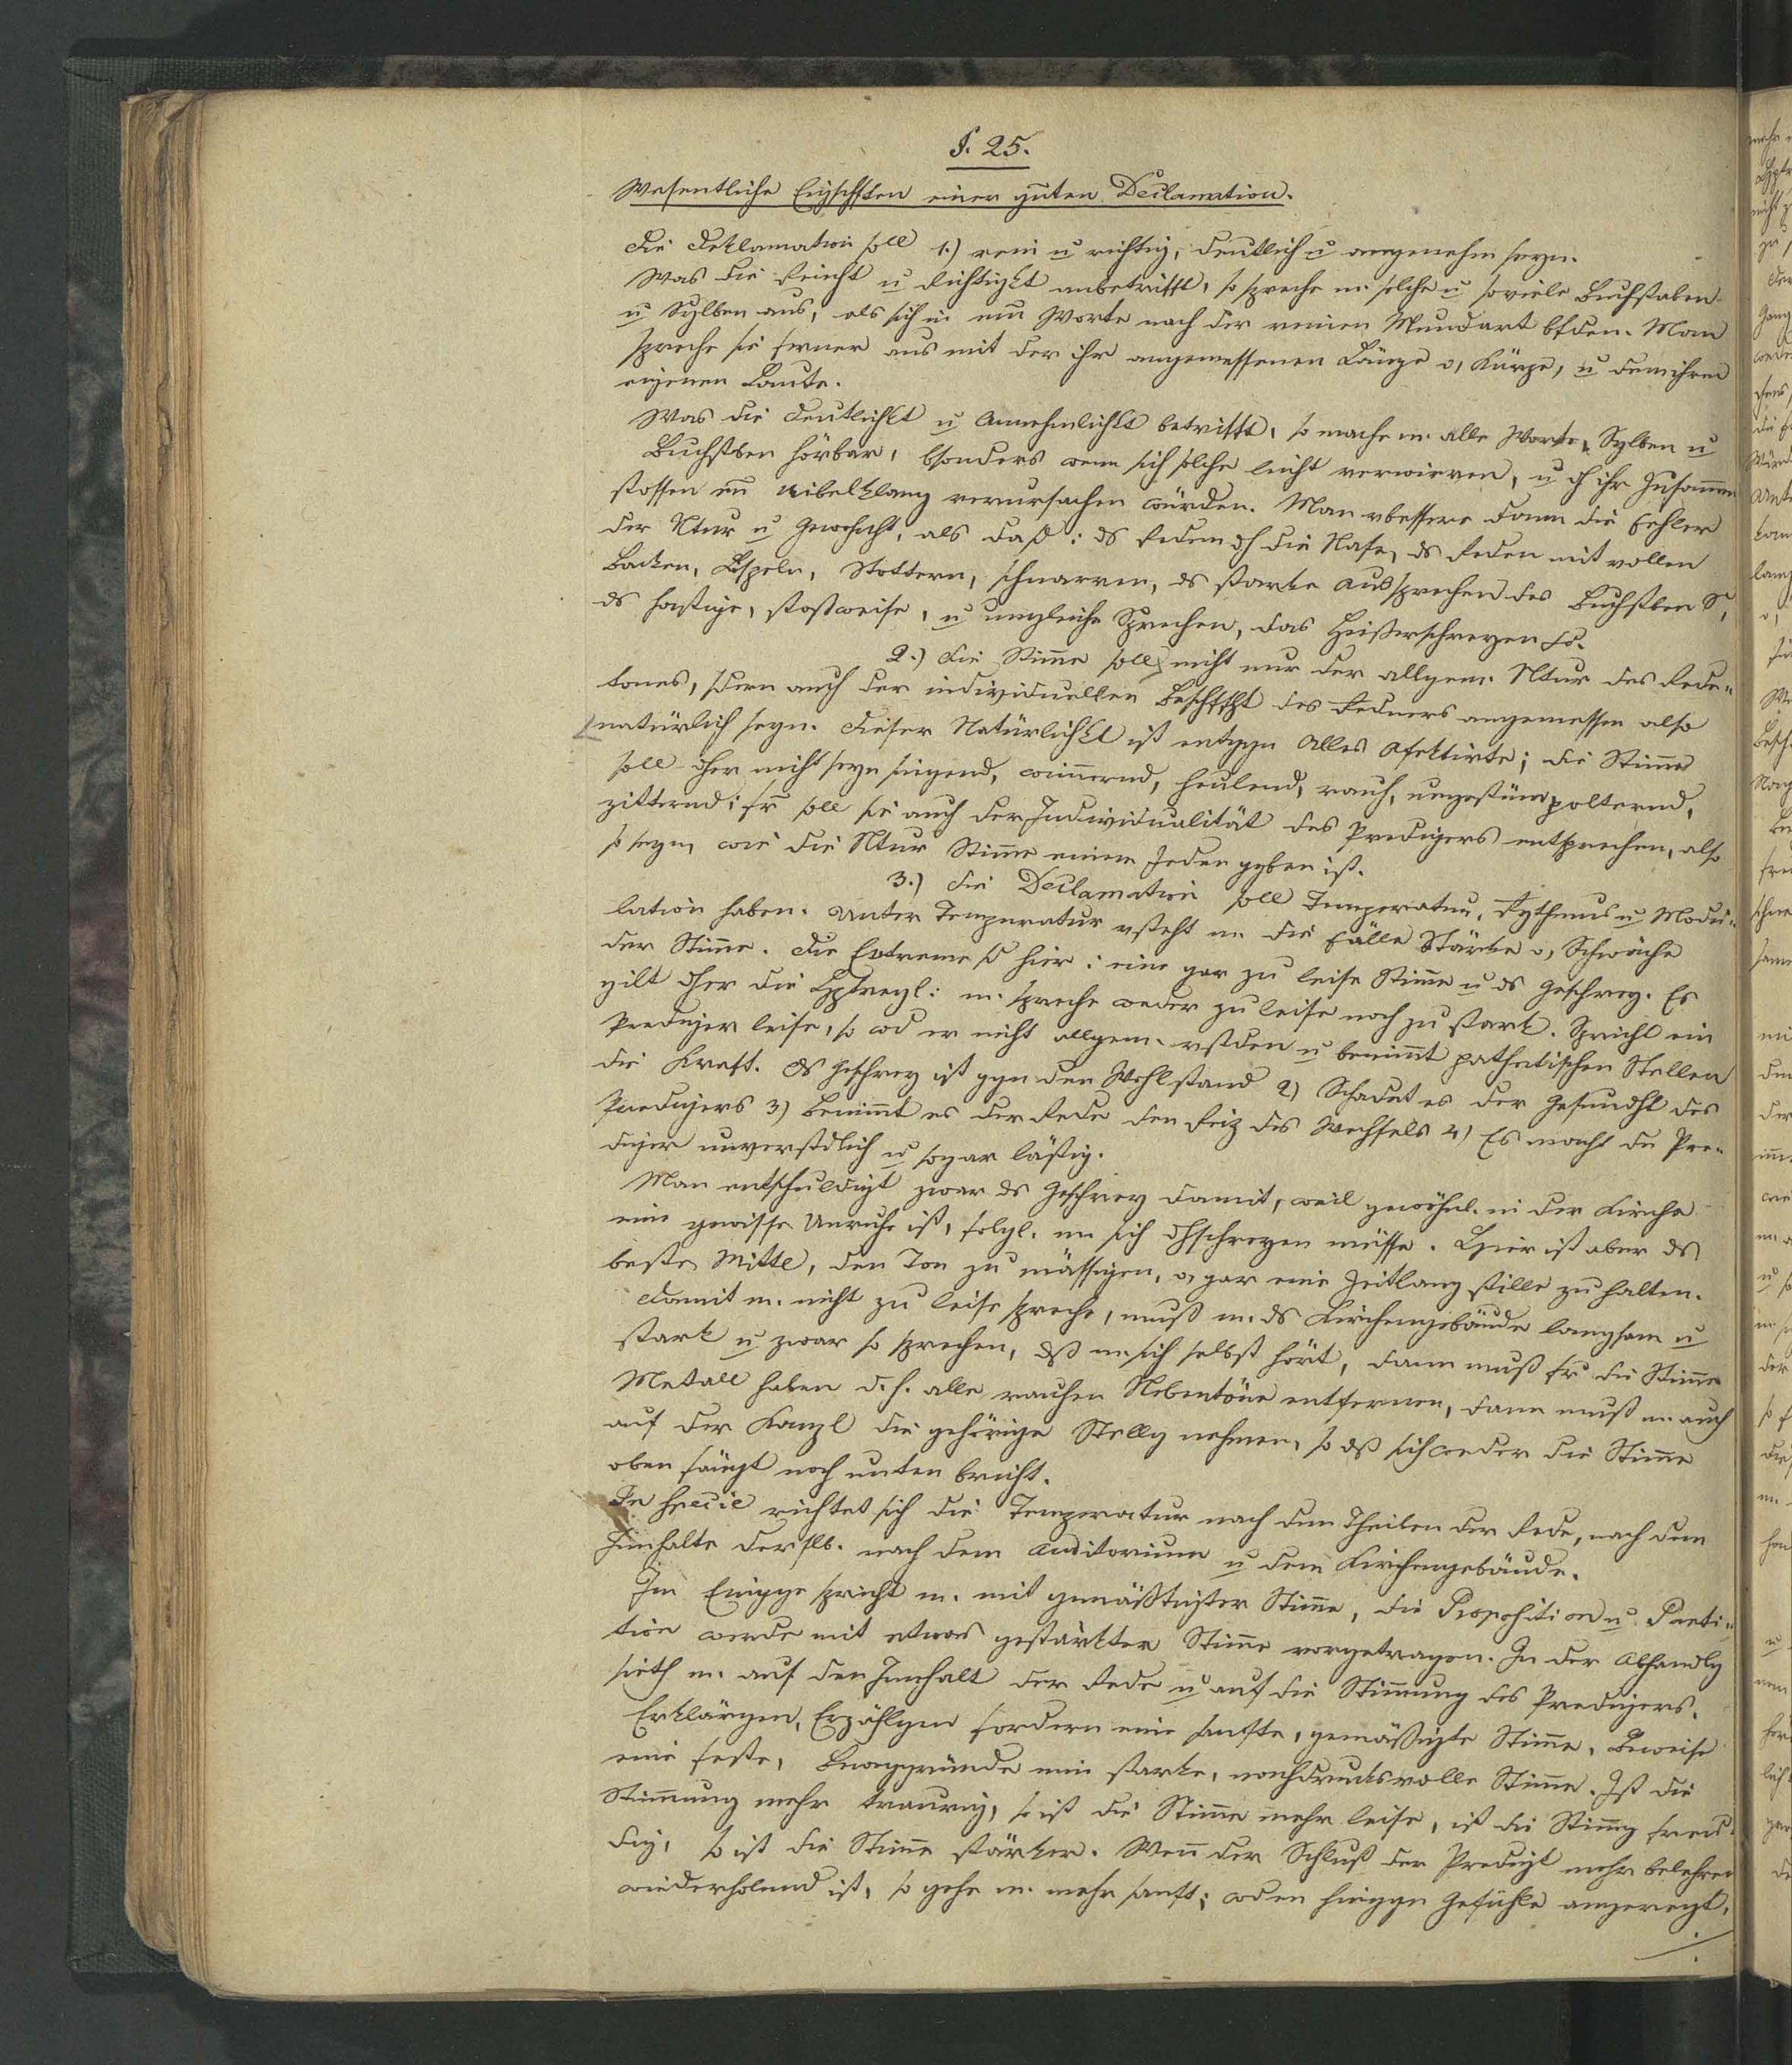 §. 25.
Wesentliche Eigschften einer guten Declamation.
Die Deklamation soll 1.) rein u richtig, deutlich u angenehm seyn.
Was die Reinht u Richtigkt anbetrifft, so spreche m. solche u soviele Buchstaben
u Sylben aus, als sich in einem Worte nach der reinen Mundart bfden. Man
spreche sie ferner aus mit der ihr angemessenen Länge o, Kürze, u dem ihren
eigenen Laute.
Was die Deutlichkt u Annehmlichkt betrifft, so mache m. alle Worte, Sylben u
Buchstben hörbar, bsonders wenn sich solche leicht verwirren, u dh ihr Zusammen
stossen ein Uibelklang verursachen würden. Man vbessere dann die Fehler
der Ntur u Gewohnht, als daß: ds Reden dh die Nase, ds Reden mit vollen
Backen, Lispeln, Stottern, schnarren, ds starke Aussprechen des Buchstben S,
ds hastige, stosweise, u ungleiche Sprechen, das Heißerschreyen
2.) Die Stimme soll nicht nur der allgem. Ntur des Rede„
tones, sdern auch der individuellen Beschffht des Redners angemessen also
natürlich seyn. Dieser Natürlichkt ist entggn Alles Afektirte; die Stimme
soll dher nicht seyn singend, wimmernd, heulend, rauh, ungestüm polternd,
zitternd; fr soll sie auch der Individualität des Predigers entsprechen, also
so seyn, wie die Ntur Stimme einem Jeden ggben ist.
3.) Die Declamation soll Temperatur, Rythmus u Modu„
lation haben. Unter Temperatur vsteht m. die Fälle Stärke o, Schwäche
der Stimme. Die Extreme sd hier: eine gar zu leise Stimme u ds Geschrey. Es
gilt dher die Hptregl: m. spreche weder zu leise noch zu stark. Spricht ein
Prediger leise, so wd er nicht allgem. vstden u benimmt pathetischen Stellen
die Kraft. Ds Geschrey ist ggn den Wohlstand 2) Schadet es der Gesundht des
Predigers 3) Benimmt es der Rede den Reiz des Wechsels 4) Es macht den Pre„
diger unverstdlich u sogar lästig.
Man entschuldigt zwar ds Geschrey damit, weil gewöhnl. in der Kirche
eine gewisse Unruhe ist, folgl. m sich dhschreyen müsse. Hier ist aber ds
beste Mittel, den Ton zu mässigen, o, gar eine Zeitlang stille zu halten.
Damit m. nicht zu leise spreche, muß m. ds Kirchengebäude langsam u
stark u zwar so sprechen, dß m sich selbst hört, dann muß fr die Stimme
Metall haben d. h. alle rauhen Nebentöne entfernen, dann muß m. auch
auf der Kanzl die gehörige Stellg nehmen, so dß sich weder die Stimme
oben fängt noch unten bricht.
In specie richtet sich die Temperatur nach den Theilen der Rede, nach dem
Innhalte derslb. nach dem Auditorium u dem Kirchengebäude.
Im Eingge spricht m. mit gemäßtigter Stimme, die Proposition u Parti„
tion werde mit etwas gestärkter Stimme vorgetragen. In der Abhandlg
sieth m. auf den Innhalt der Rede u auf die Stimmung des Predigers.
Erklärgen, Erzählgen fordern eine sanfte, gemäßigte Stimme, Beweise
eine feste, Bewggründe eine starke, nachdrucksvolle Stimme. Ist die
Stimmung mehr traurig, so ist die Stimme mehr leise, ist die Stimmg freu„
dig, so ist die Stimme stärker. Wenn der Schluß der Predigt mehr belehren
wiederholend ist, so gehe m. mehr sanft; wden hinggn Gefühle angeregt,